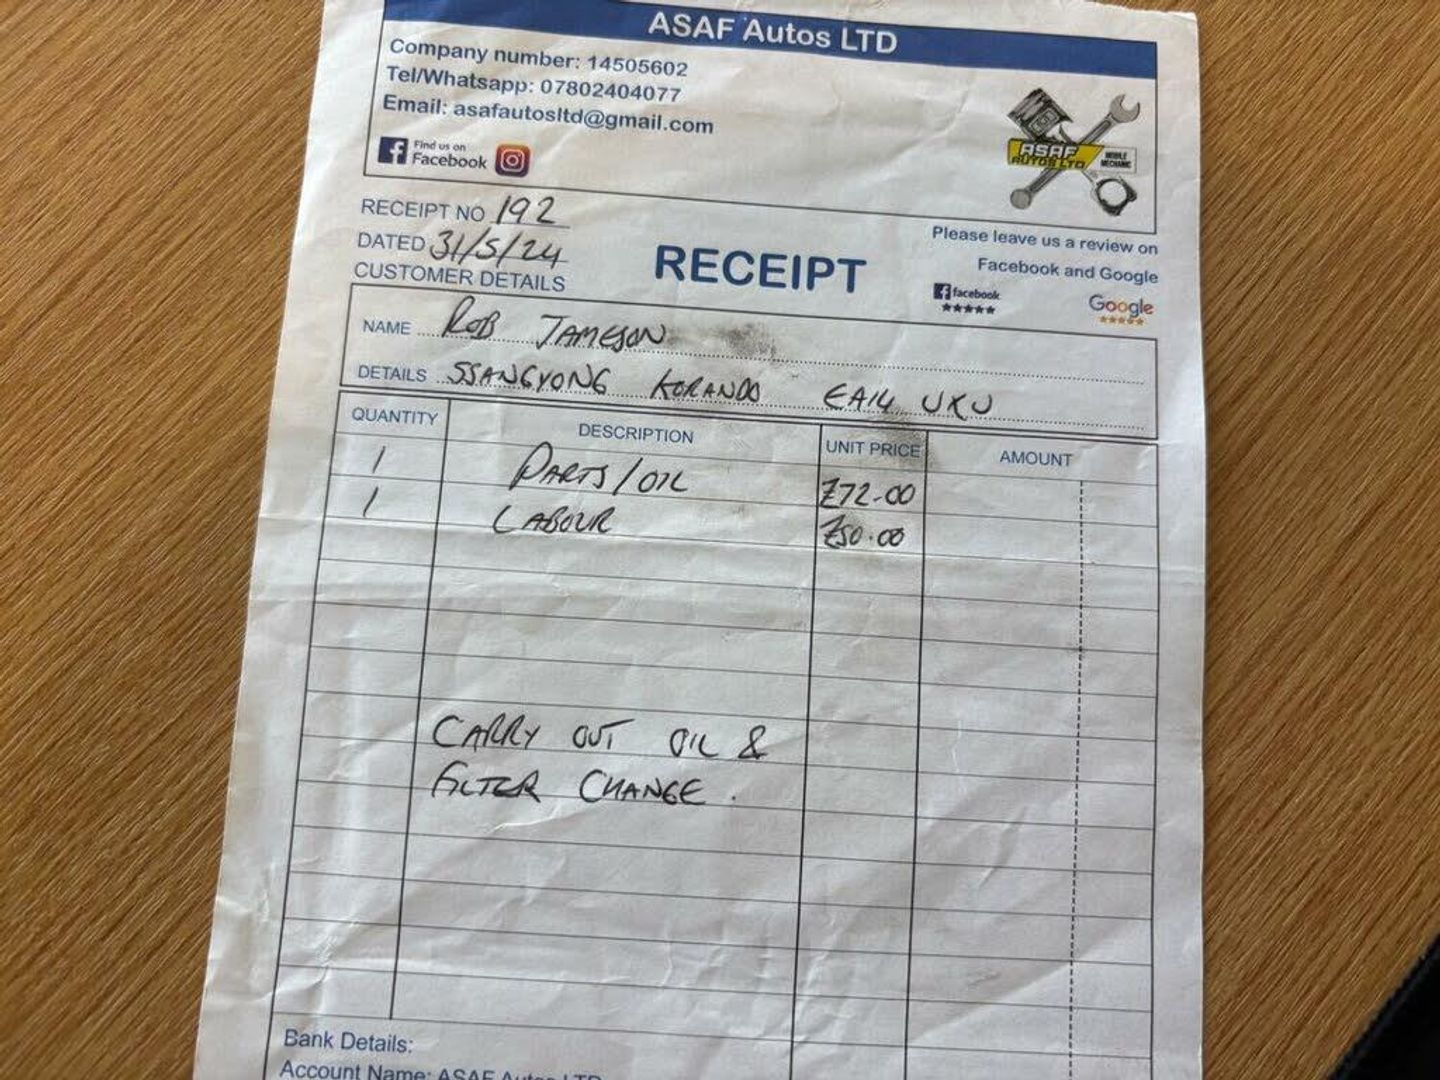 ASAF Autos LTD
Company number: 14505602
Tel/Whatsapp: 07802404077
Email: asafautosltd@gmail.com
Find us on
Facebook
ASAF
AUTOS LTD
MOBILE
MECHANIC
RECEIPT NO 192
DATED 31/5/24
CUSTOMER DETAILS
RECEIPT
Please leave us a review on
Facebook and Google
facebook
Google
NAME ROB JAMESON
DETAILS SSANGYONG KORANDO EA14 UXU
QUANTITY DESCRIPTION UNIT PRICE AMOUNT
1 PARTS/OIL £72.00
1 LABOUR £50.00
CARRY OUT OIL &
FILTER CHANGE.
Bank Details:
Account Name: ASAF Autos LTD